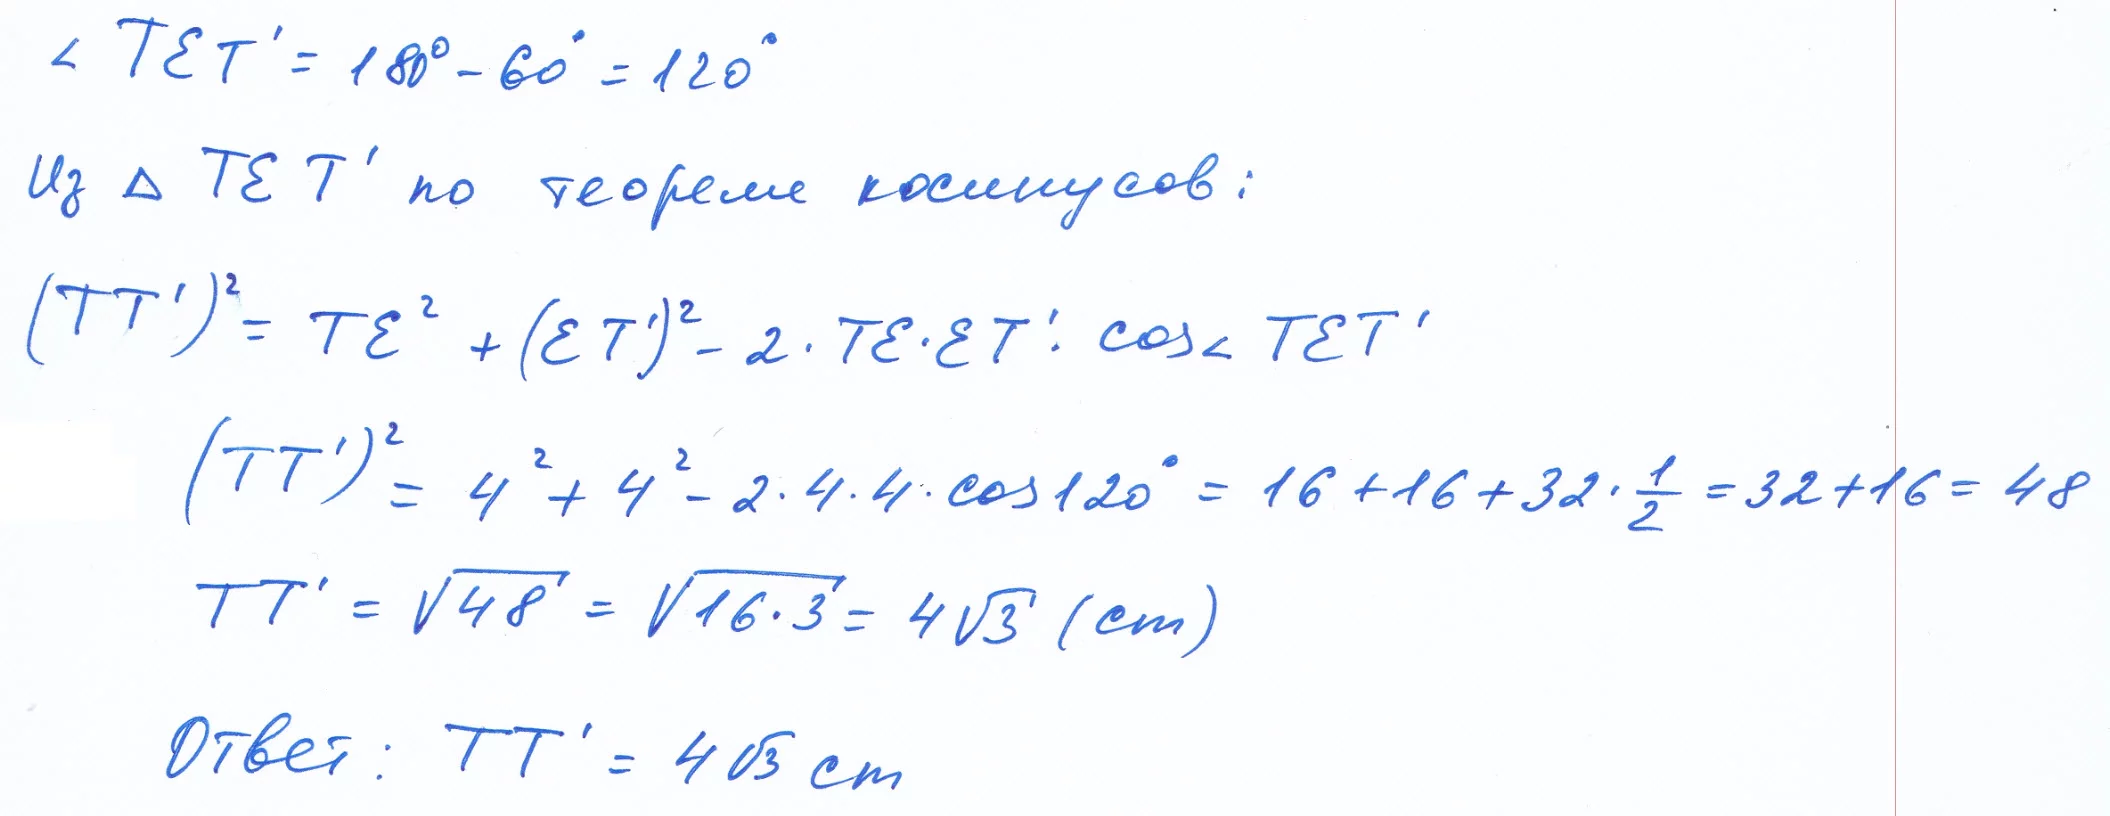 ∠ TET' = 180° - 60° = 120°
Из △ TET' по теореме косинусов:
(TT')² = TE² + (ET')² - 2 · TE · ET' · cos∠ TET'
(TT')² = 4² + 4² - 2 · 4 · 4 · cos120° = 16 + 16 + 32 · 1/2 = 32 + 16 = 48
TT' = √48 = √16·3 = 4√3 (cm)
Ответ: TT' = 4√3 cm